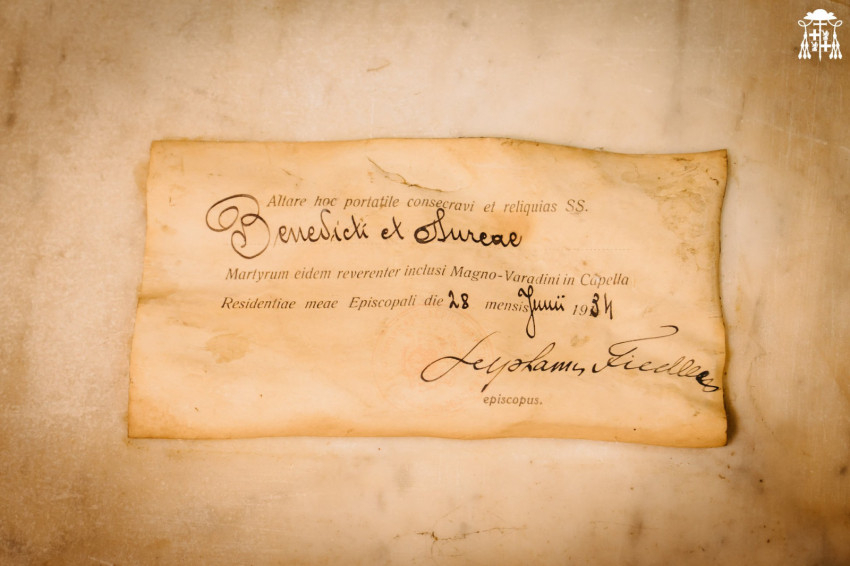 Altare hoc portatile consecravi et reliquias SS.
Benedicti et Aureae
Martyrum eidem reverenter inclusi Magno-Varadini in Capella
Residentiae meae Episcopali die 28 mensis Junii 1934
Stephanus Fiedler
episcopus.